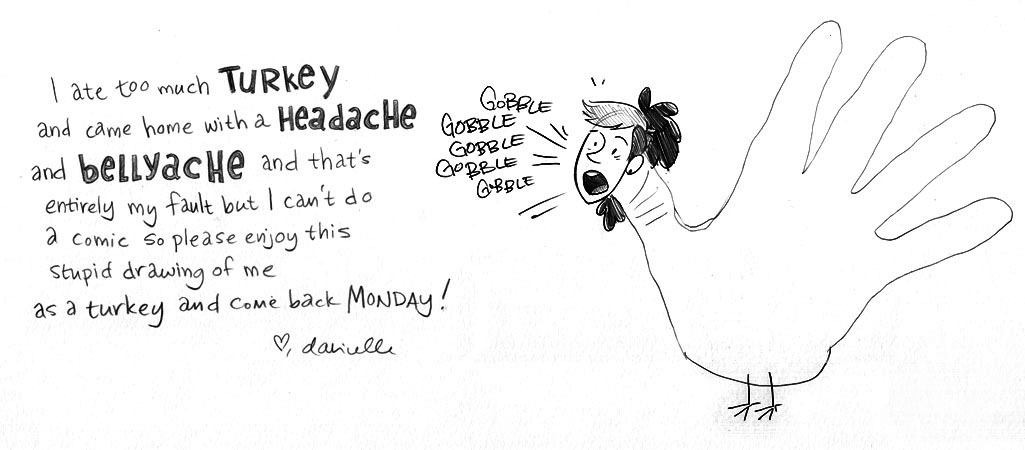 I ate too much TURKEY
and came home with a HEADACHE
and BELLYACHE and that's
entirely my fault but I can't do
a comic so please enjoy this
stupid drawing of me
as a turkey and come back MONDAY!
♡, danielle
GOBBLE
GOBBLE
GOBBLE
GOBBLE
GOBBLE